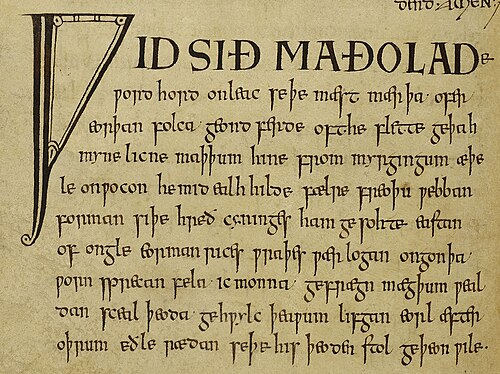 AMEN:7
ǷID SIÐ MAÐOLADe
ƿord hord onleac seþe mæst mærþa ofer
eorþan folca geond ferde oft he flette geþah
myne licne maþþum hine from myrgingum æþe
le onƿocon he mid ealh hilde fælre freoþu ƿebban
forman siþe hred cyninges ham gesohte eastan
of ongle eorman rices ƿraþes ƿær logan ongon þa
ƿorn sprecan fela · ic monna gefrægn mægþum ƿeal
dan sceal þeoda gehƿylc þeaƿum lifgan eorl æfter
oþrum eðle rædan seþe his þeoden stol geþeon ƿile ·